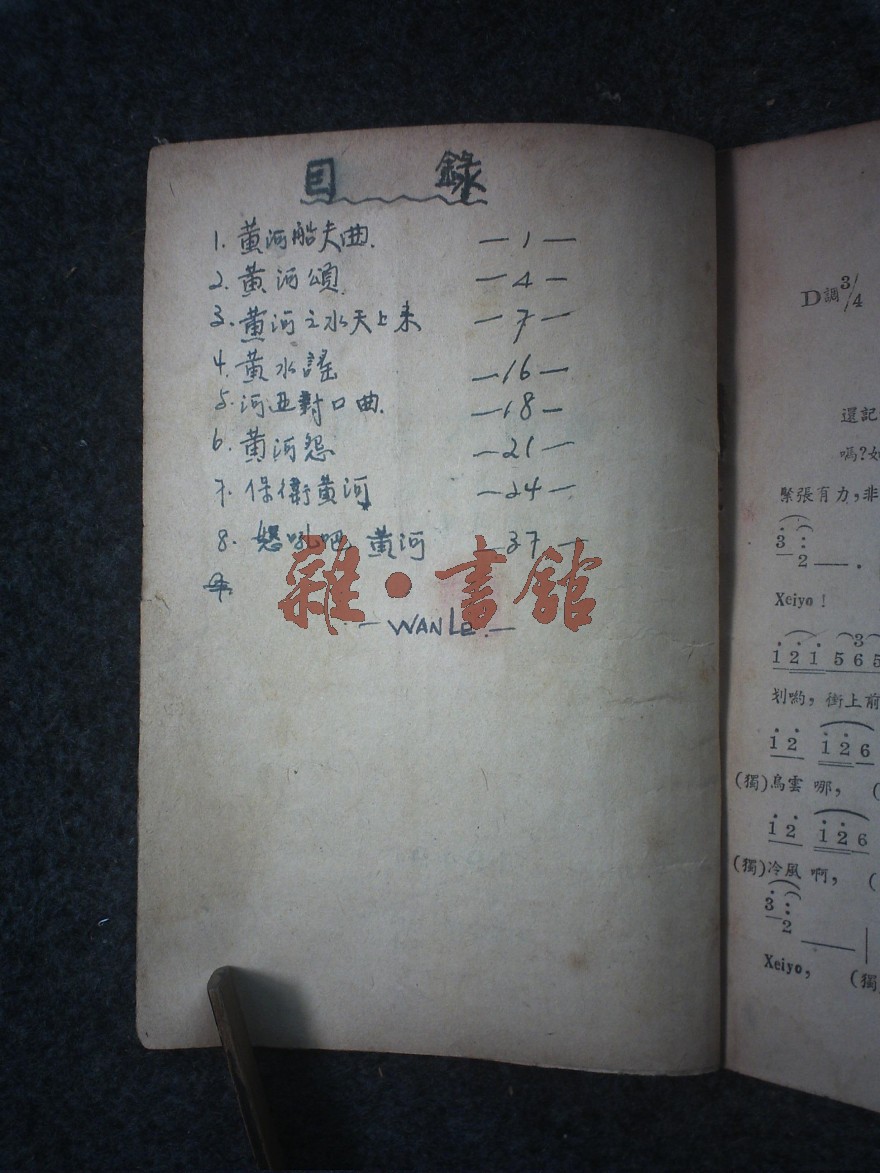 目 錄
1. 黃河船夫曲. —1—
2. 黃河頌. —4—
3. 黃河之水天上来 —7—
4. 黃水謠 —16—
5. 河边對口曲. —18—
6. 黃河怨 —21—
7. 保衛黃河 —24—
8. 怒吼吧 黃河 —37—
雜·書舘
— WAN Le. —
D調3/4
還記
嗎?如
緊張有力,非
3 2 — .
Xeiyo!
1 2 1 5 6 5
划喲, 衝上前
1 2 1 2 6
(獨)烏雲 哪, (
1 2 1 2 6
(獨)冷風 啊, (
3 2 —
Xeiyo, (獨